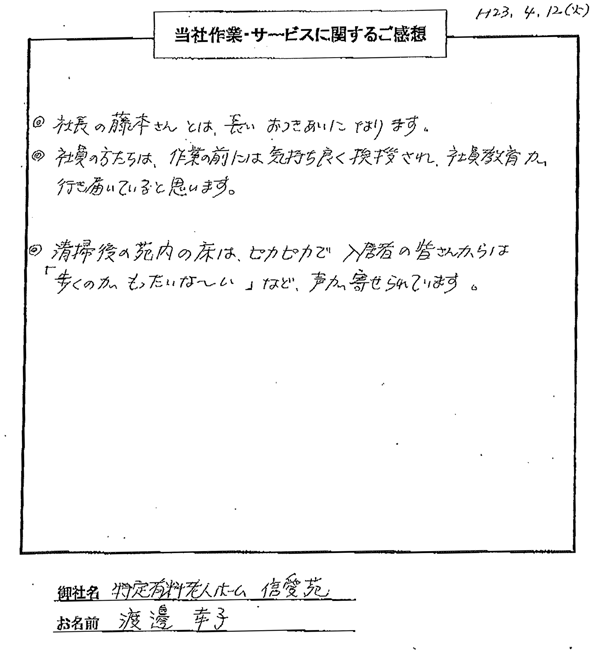 H23.4.12(火)
当社作業・サービスに関するご感想
◎ 社長の藤本さんとは、長いおつきあいになります。
◎ 社員の方たちは、作業の前には気持ち良く挨拶され、社員教育が
行き届いていると思います。
◎ 清掃後の苑内の床は、ピカピカで入居者の皆さんからは
「歩くのがもったいな〜い」など、声が寄せられています。
御社名 特定有料老人ホーム 信愛苑
お名前 渡邊 幸子